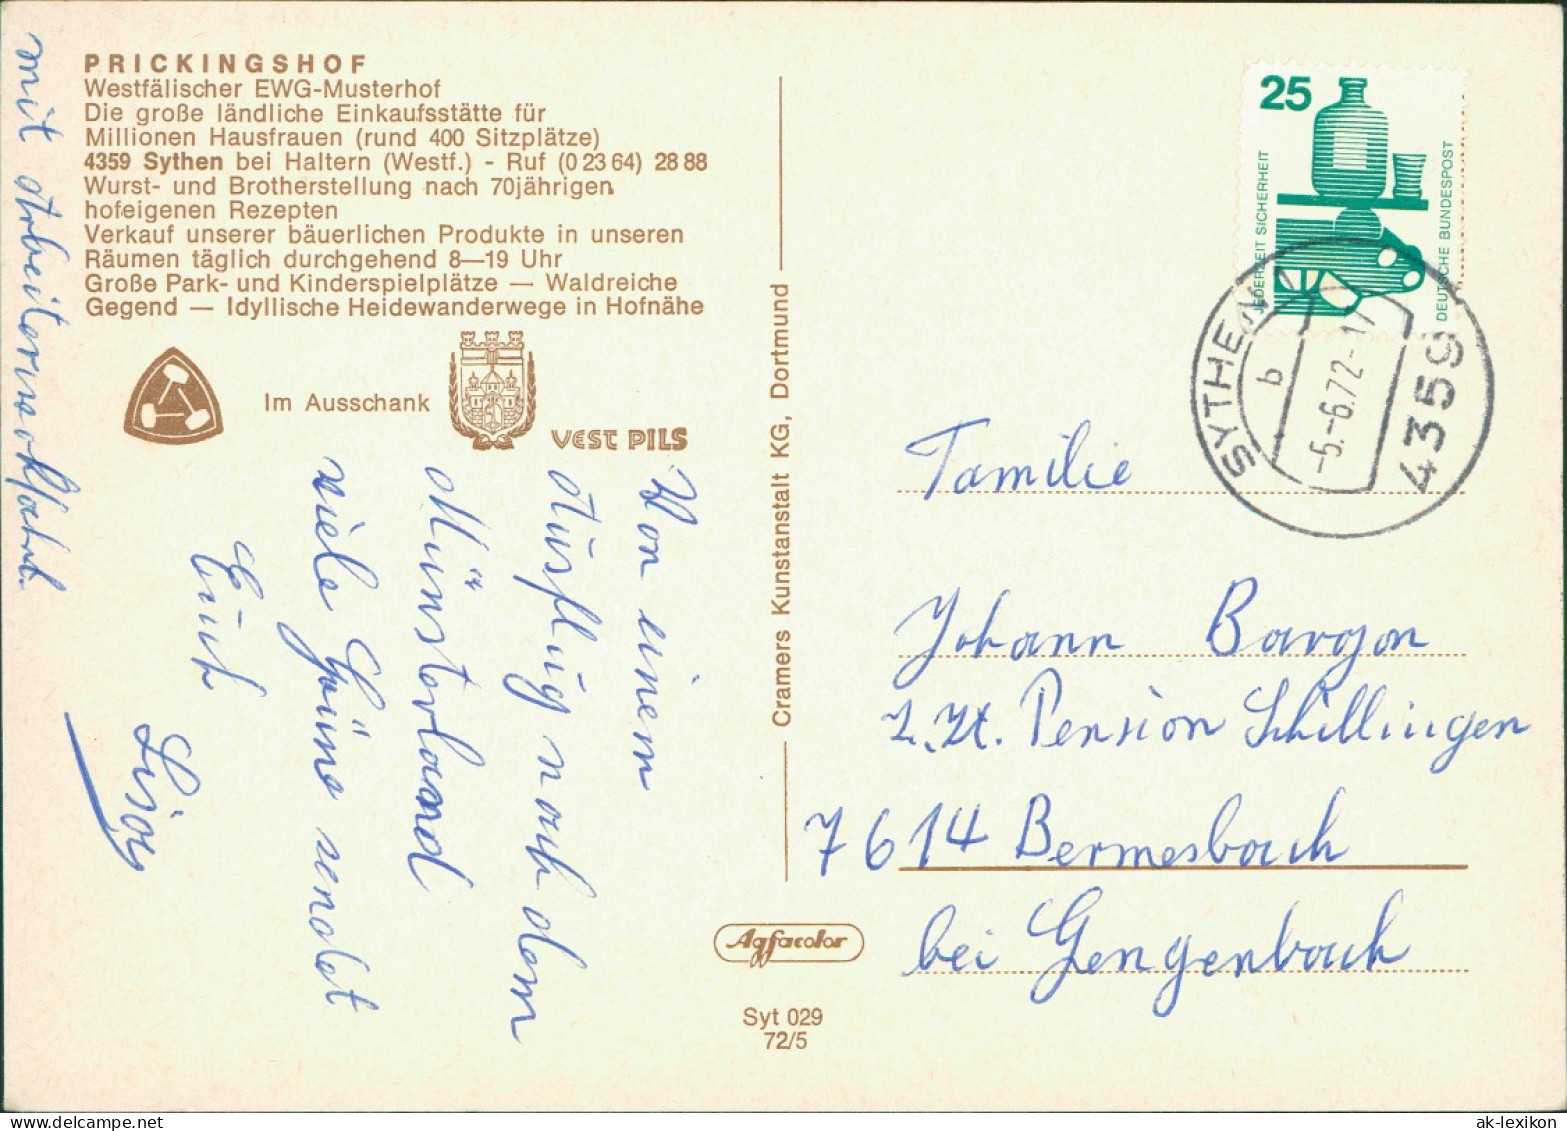 PRICKINGSHOF
Westfälischer EWG-Musterhof
Die große ländliche Einkaufsstätte für
Millionen Hausfrauen (rund 400 Sitzplätze)
4359 Sythen bei Haltern (Westf.) - Ruf (0 23 64) 28 88
Wurst- und Brotherstellung nach 70jährigen
hofeigenen Rezepten
Verkauf unserer bäuerlichen Produkte in unseren
Räumen täglich durchgehend 8—19 Uhr
Große Park- und Kinderspielplätze — Waldreiche
Gegend — Idyllische Heidewanderwege in Hofnähe
Im Ausschank
VEST PILS
Von einem
Ausflug nach dem
Münsterland
viele Grüße sendet
Euch
mit Arbeiterwohlfahrt.
Cramers Kunstanstalt KG, Dortmund
Agfacolor
Syt 029
72/5
25
JEDERZEIT SICHERHEIT
DEUTSCHE BUNDESPOST
SYTHEN 1
b
-5.-6.72-17
4359
Familie
Johann Bargon
z. Zt. Pension Schillingen
7614 Bermesbach
bei Gengenbach
ak-lexikon